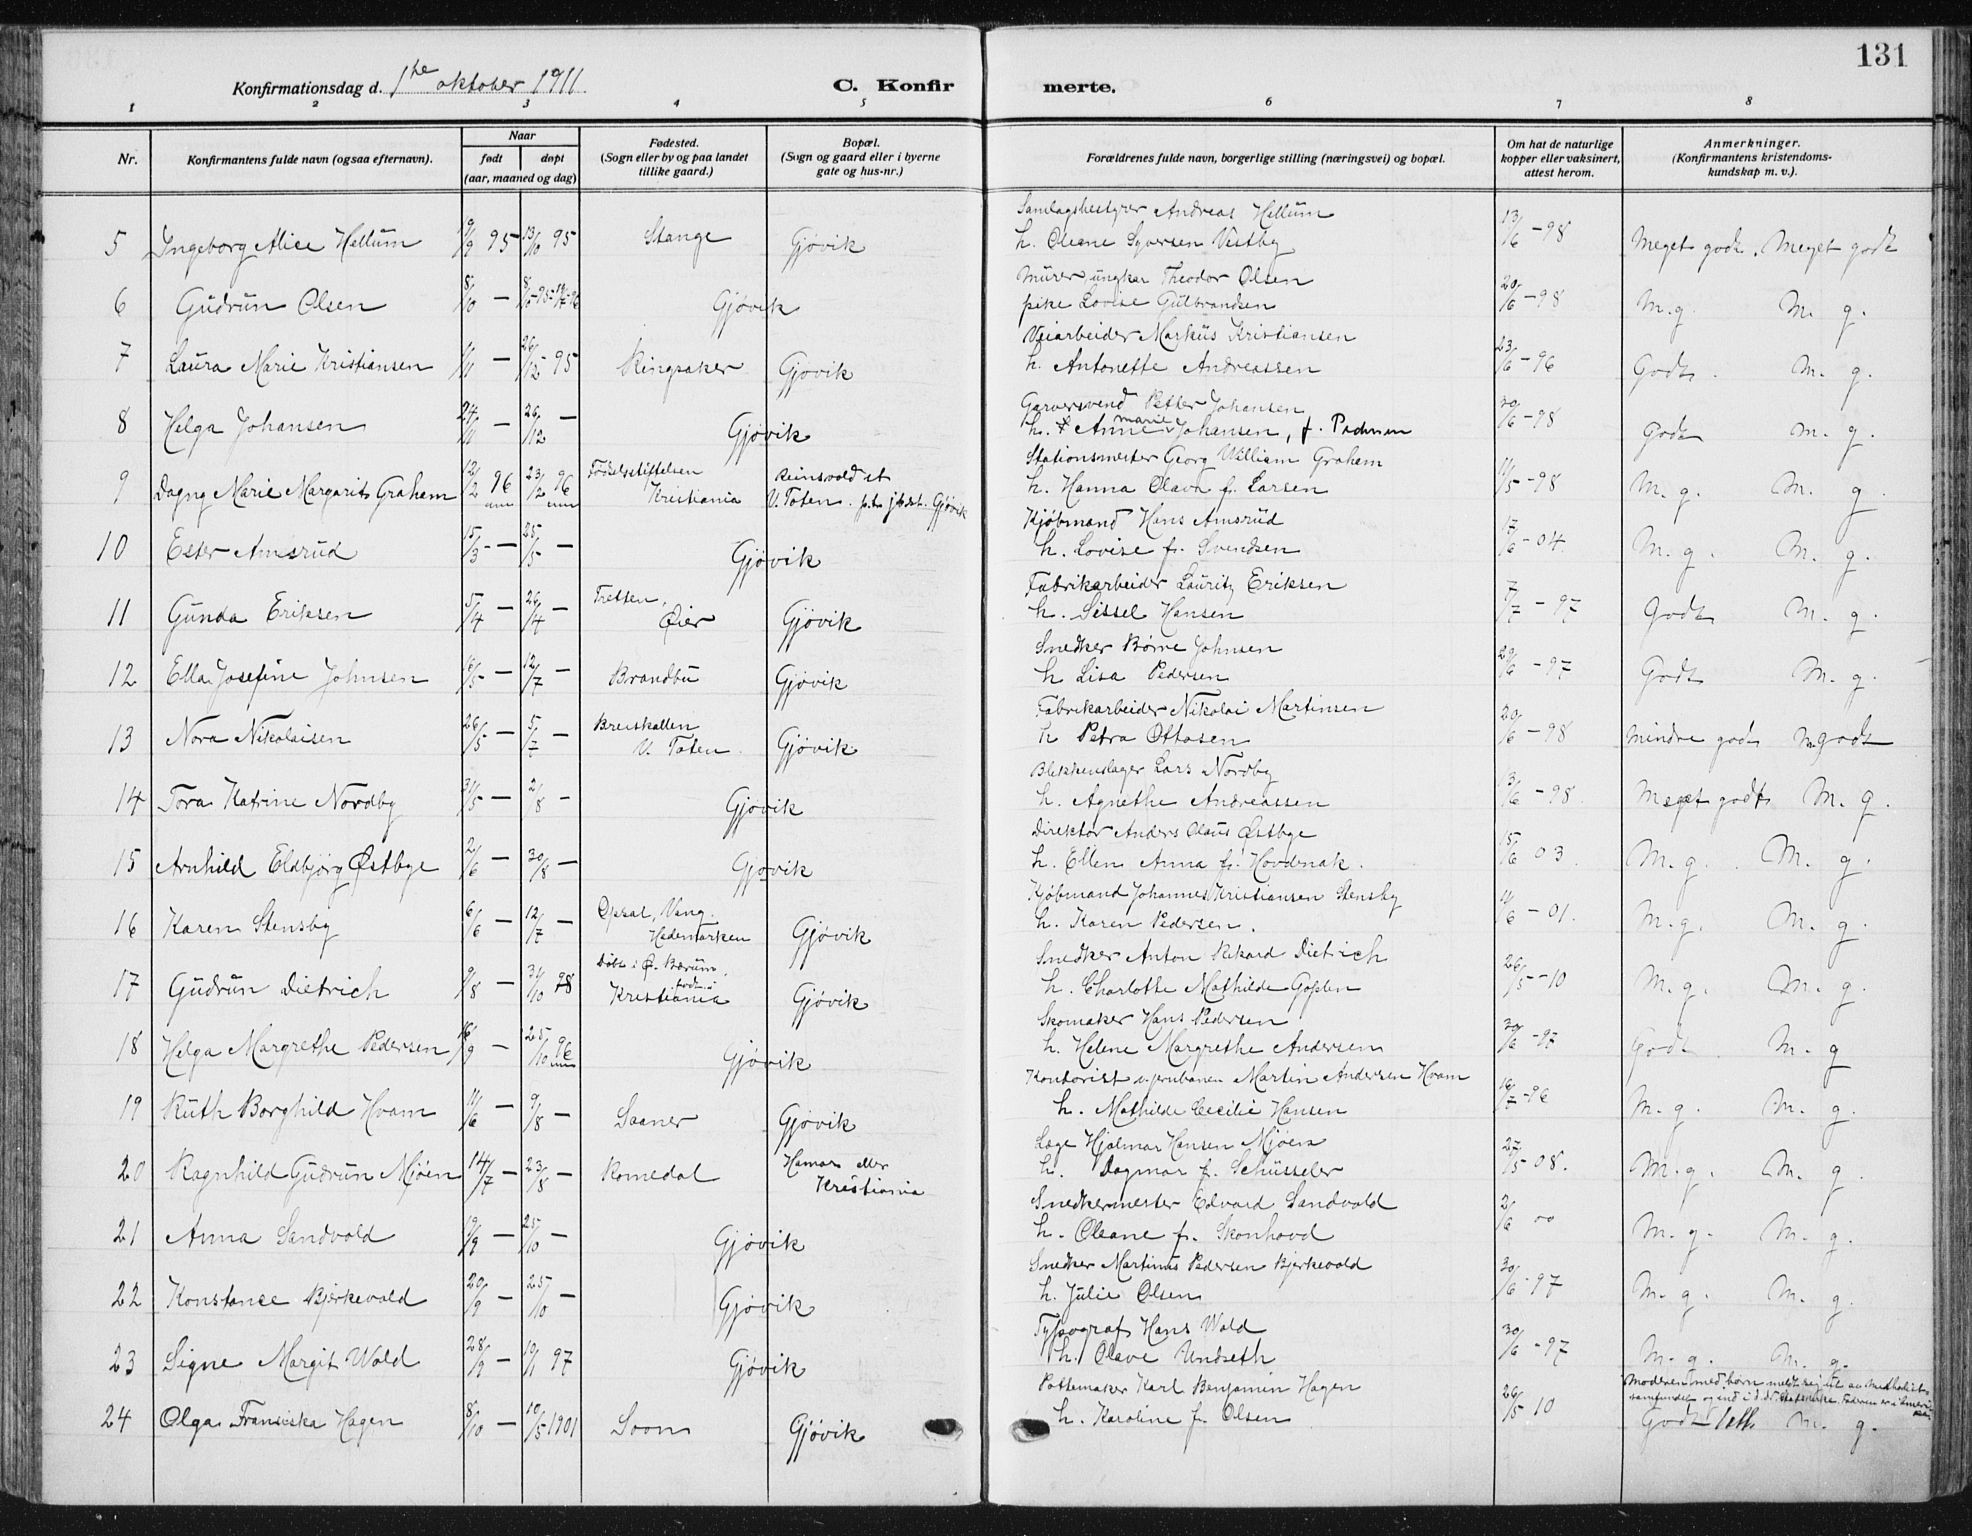 131
Konfirmationsdag d. 1ste oktober 1911.
C. Konfirmerte.
1 2 3 4 5 6 7 8
Nr. Konfirmantens fulde navn (ogsaa efternavn). Naar født døpt (aar, maaned og dag) Fødested. (Sogn eller by og paa landet tillike gaard.) Bopæl. (Sogn og gaard eller i byerne gate og hus-nr.) Forældrenes fulde navn, borgerlige stilling (næringsvei) og bopæl. Om hat de naturlige kopper eller vaksinert, attest herom. Anmerkninger. (Konfirmantens kristendomskundskap m. v.).
Samlagsbestyrer Andreas Hellum
5 Ingeborg Alice Hellum 95 13/10 95 Stange Gjøvik h. Oleane Syversen Vestby 13/6-98 Meget godt. Meget godt
Murer, ungkar Theodor Olsen
6 Gudrun Olsen 8/10 — Gjøvik pike Lovise Gulbrandsen 20/6-98 M. g. M. g.
Veiarbeider Markus Kristiansen
7 Laura Marie Kristiansen 1/11 — 26/12 95 Ringsaker Gjøvik h. Antonette Andreassen 23/6-96 Godt. M. g.
Garversvend Petter Johansen
8 Helga Johansen 24/11 — 26/12 — Gjøvik h. Anne Marie Johansen, f. 20/6-98 Godt M. g.
Stationsmester Georg William Graham
9 Dagny Marie Margarite Graham 12/2 96 23/2 96 Fødselsstiftelsen Kristiania Reinsvold st V. Toten. Gjøvik h. Hanna Olava f. Larsen 11/5-98 M. g. M. g.
Kjøbmand Hans Amsrud
10 Ester Amsrud 15/3 — 25/5 — Gjøvik h. Lovise f. Svendsen 17/6-04. M. g. M. g.
Fabrikarbeider Lauritz Eriksen
11 Gunda Eriksen 5/4 — 26/4 — Tretten, Øier Gjøvik h. Sissel Hansen 7/7-97 Godt M. g.
Snedker Børre Johnsen
12 Ella Josefine Johnsen 16/5 — 12/7 — Brandbu Gjøvik h Lisa Pedersen 29/6-97 Godt M. g.
Fabrikarbeider Nikolai Martinsen
13 Nora Nikolaisen 26/5 — 5/7 — Breiskallen V. Toten. Gjøvik h Petra Ottosen 20/6-98 mindre godt M. godt
Blikkenslager Lars Nordby
14 Tora Katrine Nordby 31/5 — 2/8 — Gjøvik h. Agnethe Andreassen 13/6-98. Meget godt M. g.
Direktør Anders Olaus Østbye
15 Arnhild Eldbjørg Østbye 2/6 — 30/8 — Gjøvik h. Ellen Anna f. Hovdenak. 15/6 03. M. g. M. g.
Kjøbmand Johannes Kristiansen Stensby
16 Karen Stensby 6/6 — 12/7 — Opsal, Vang. Hedemarken Gjøvik h. Karen Pedersen. 11/6-01. M. g. M. g.
Snedker Anton Rikard Dietrich
17 Gudrun Dietrich 9/8 — 31/10 98 Døbt i Ø. Bærum, født i Kristiania Gjøvik h. Charlotte Mathilde Goplen 26/5-10 M. g. M. g.
Skomaker Hans Pedersen
18 Helga Margrethe Pedersen 16/9 — 25/10 96 Gjøvik h. Helene Margrethe Andersen 30/6-97 Godt. M. g
Kontorist v. jernbanen Martin Andersen Hvam
19 Ruth Borghild Hvam 11/6 — 9/8 — Saaner Gjøvik h. Mathilde Cecilie Hansen 16/7-96 M. g. M. g.
Læge Hjalmar Hansen Mjøen
20 Ragnhild Gudrun Mjøen 14/7 — 23/8 — Romedal Hamar eller Kristiania h. Dagmar f. Schüsseler 27/5-08. M. g. M. g.
Snedkermester Edvard Sandvold
21 Anna Sandvold 19/9 — 25/10 — Gjøvik h. Oleane f. Skonhovd 2/6 00 M. g. M. g.
Snedker Martinus Pedersen Bjerkevold
22 Konstance Bjerkevold 20/9 — 25/10 — Gjøvik h. Julie Olsen 30/6-97 M. g. M. g.
Typograf Hans Wold
23 Signe Margit Wold 28/9 — 10/1 97 Gjøvik h. Olave Undseth 30/6-97 M. g. M. g.
Pottemaker Karl Benjamin Hagen
Moderen med børn meldt sig ut av Methodistsamfundet og ind i d. n. Statskirke. Faderen er i Amerika.
24 Olga Franciska Hagen 8/10 — 10/5 1901 Soon Gjøvik h. Karoline f. Olsen 26/5 10 Godt M. g.